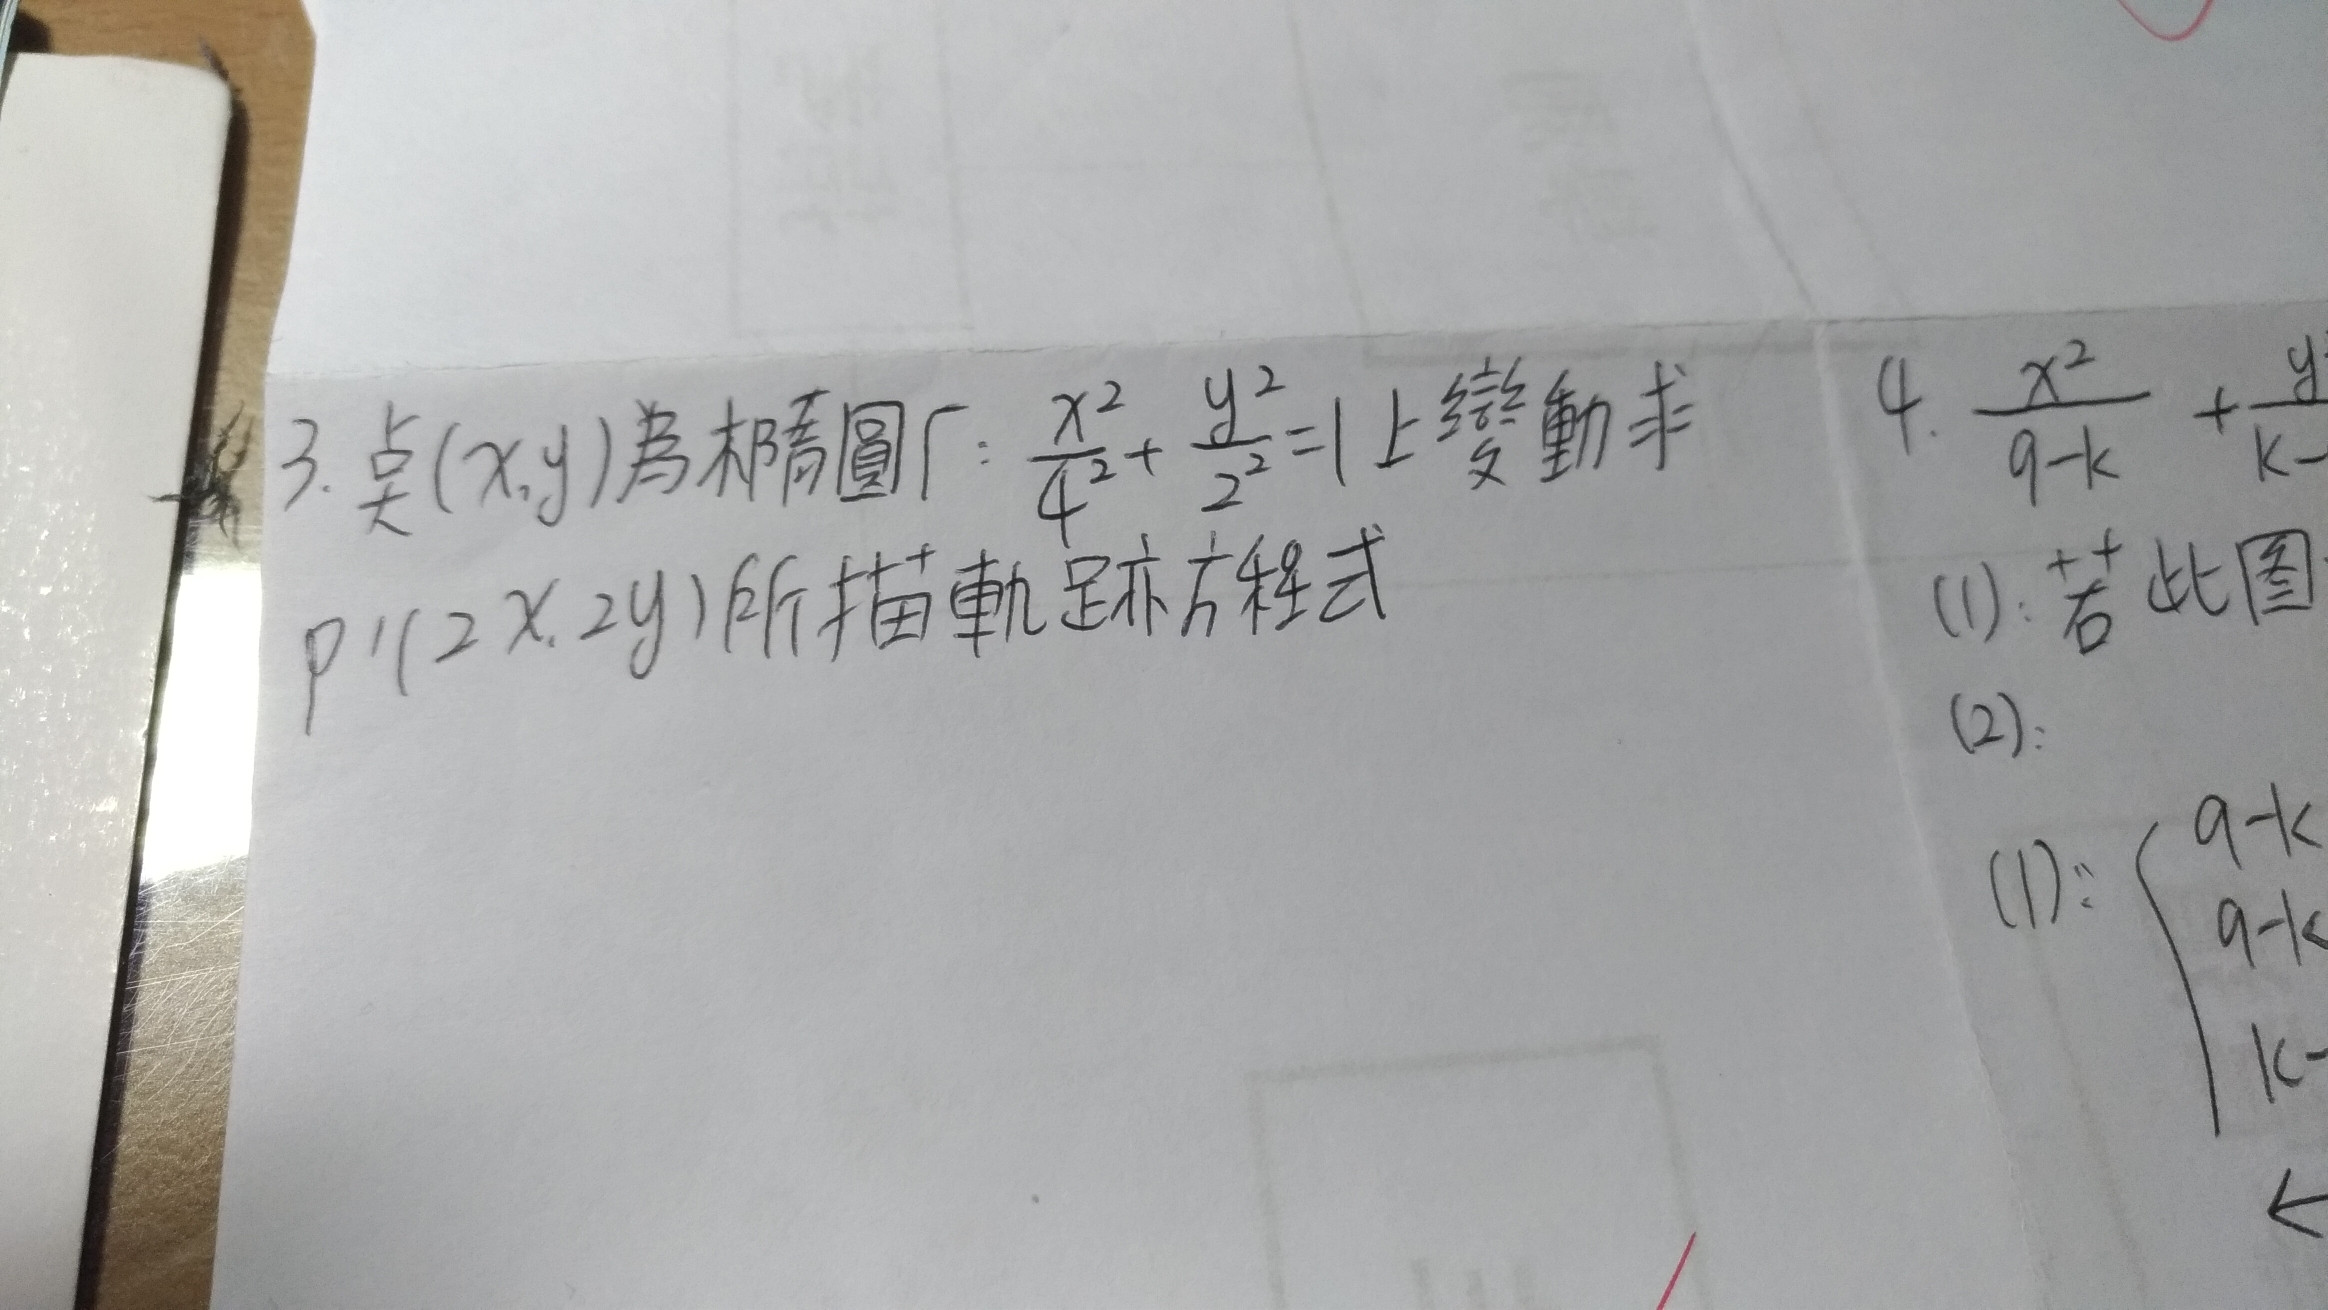 3. 点(x,y)為橢圓Γ: x²/4² + y²/2² = 1上變動求
P'(2x,2y)所描軌跡方程式
4. x²/9-k + y²/k-
(1): 若此图
(2):
(1): { 9-k
9-k
k-
←